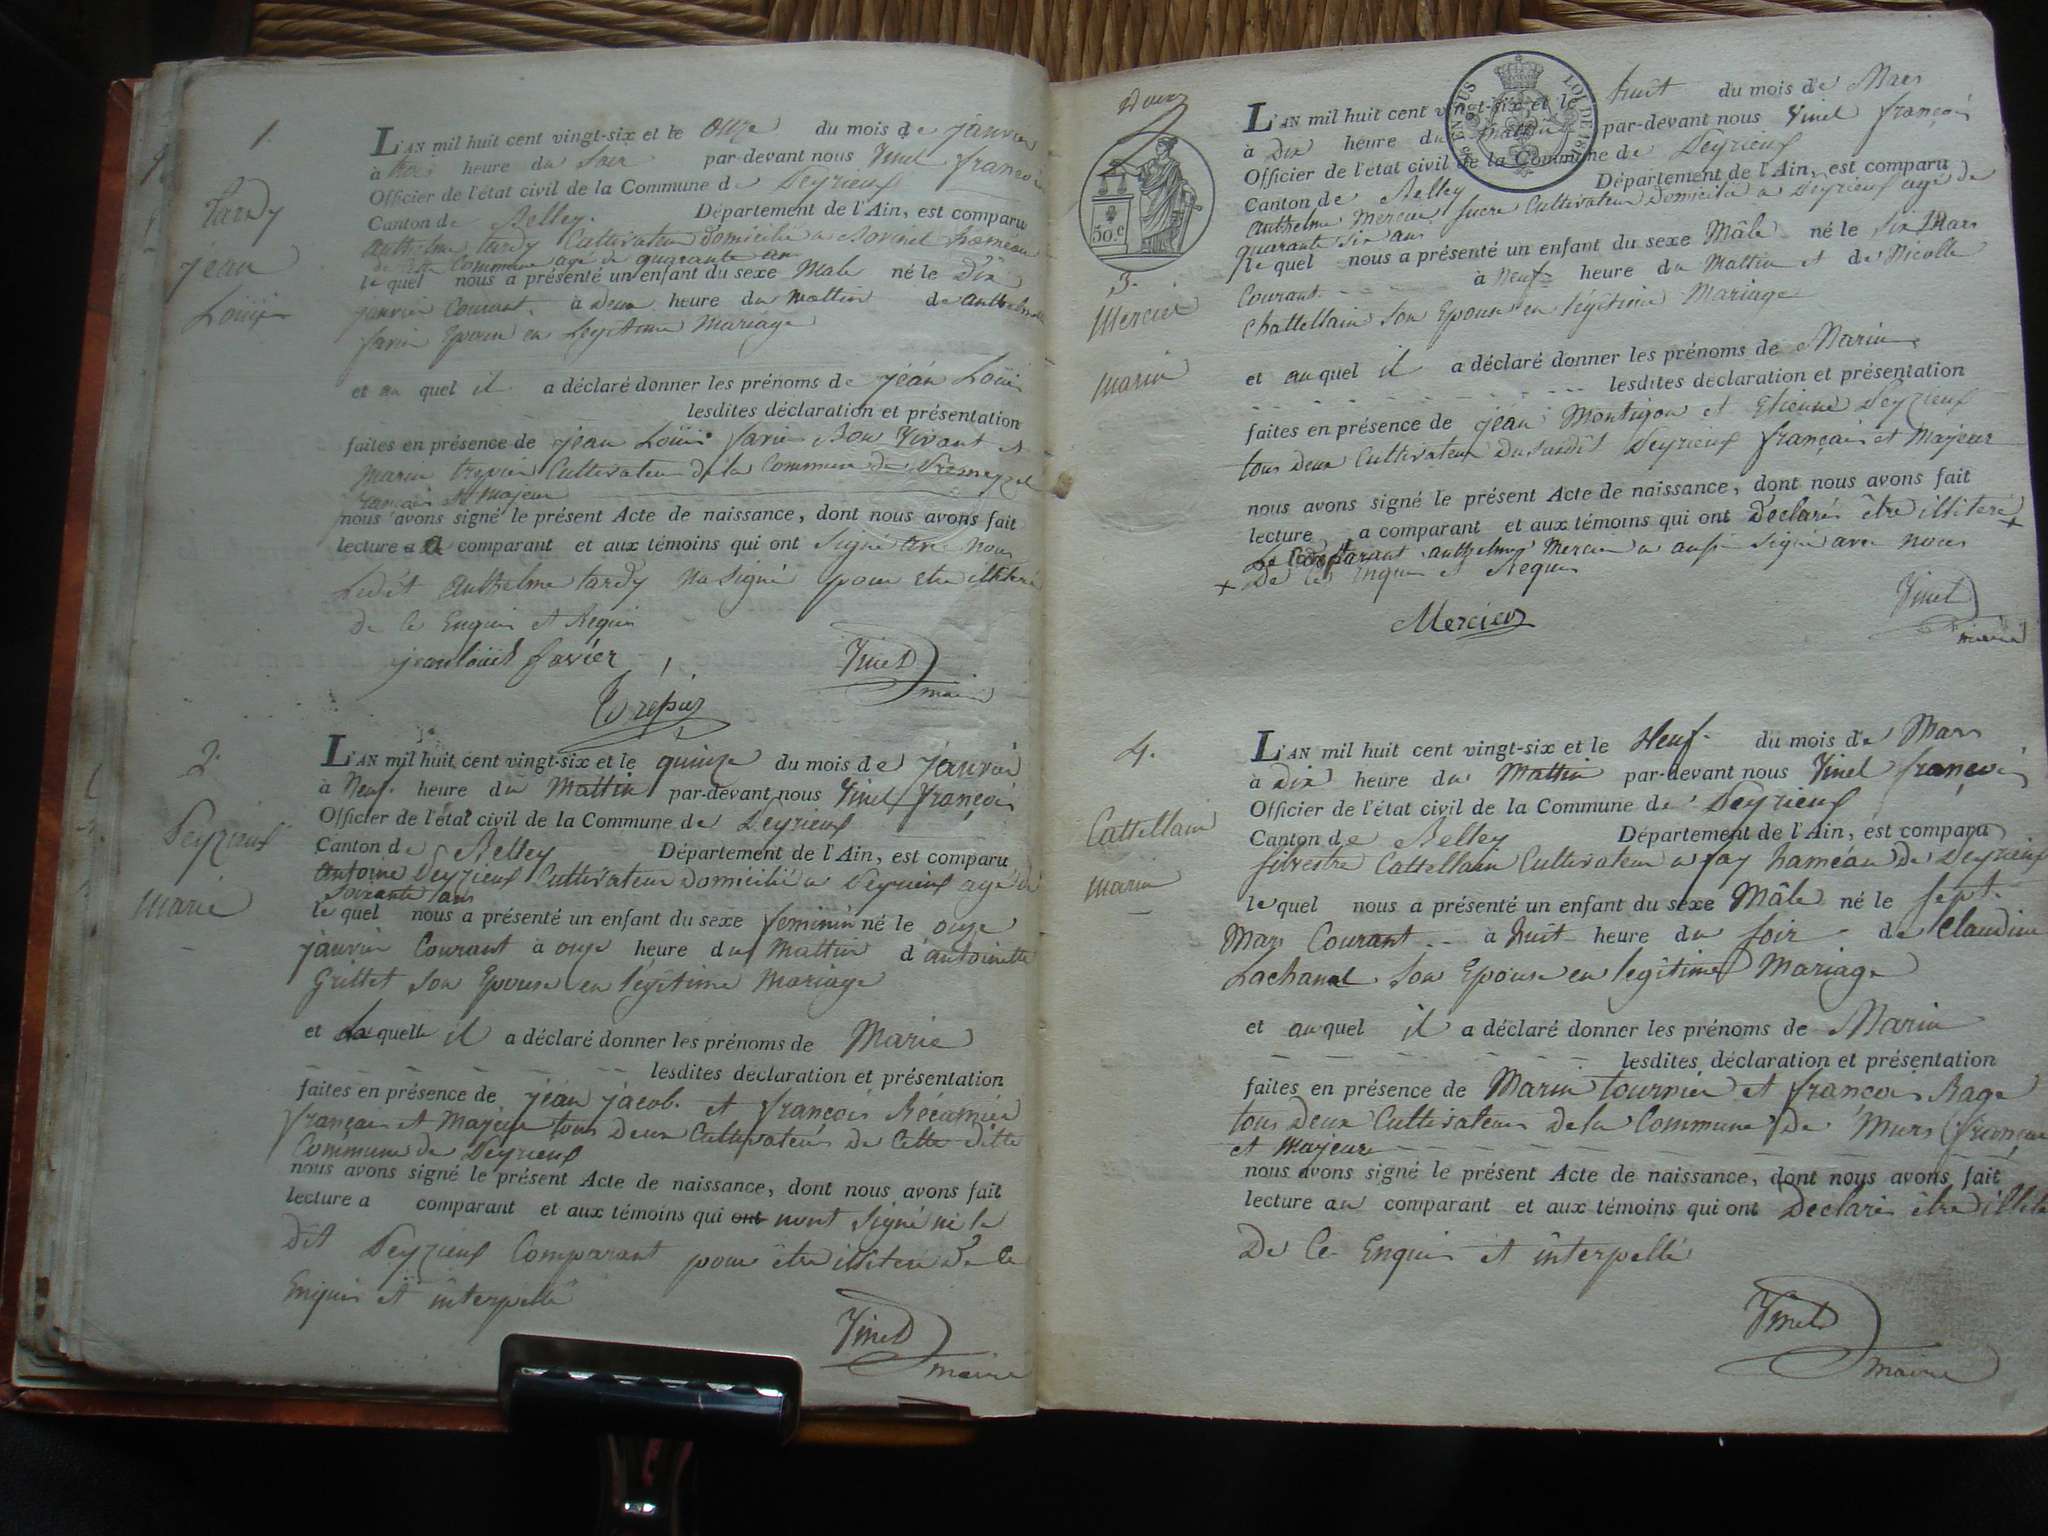 1.
Tardy
jean
Louis
L'AN mil huit cent vingt-six et le onze du mois de janvier
à trois heure du soir par-devant nous Vinet françois
Officier de l'état civil de la Commune de Peyrieux
Canton de Belley. Département de l'Ain, est comparu
anthelme tardy Cultivateur domicilié a hameau
de Commune agé de quarante an
le quel nous a présenté un enfant du sexe Male né le Dix
janvier Courant. à Deux heure du mattin de
Epouse en Legitime Mariage
et au quel il a déclaré donner les prénoms de jéan Louis
lesdites déclaration et présentation
faites en présence de jean Louis et
Marin Cultivateur de la Commune de
français et majeur
nous avons signé le présent Acte de naissance, dont nous avons fait
lecture a comparant et aux témoins qui ont signé avec nous
Ledit anthelme tardy na signé pour etre illiteré
de ce Enquis et Requis
jean louis favier
Trépier
Vinet
maire
2.
Peyrieux
Marie
L'AN mil huit cent vingt-six et le quinze du mois de janvier
à Neuf heure du Mattin par-devant nous Vinet françois
Officier de l'état civil de la Commune de Peyrieux
Canton de Belley Département de l'Ain, est comparu
antoine Peyrieux Cultivateur domicilié a Peyrieux agé de
soixante ans
le quel nous a présenté un enfant du sexe feminin né le onze
janvier Courant à onze heure du Mattin d'antoinette
Grillet son Epouse en légitime Mariage
et la quelle il a déclaré donner les prénoms de Marie
lesdites déclaration et présentation
faites en présence de jéan jacob. et françois Récamier
français et Majeur tous deux Cultivateurs de Cette ditte
Commune de Peyrieux
nous avons signé le présent Acte de naissance, dont nous avons fait
lecture a comparant et aux témoins qui ont nont signé ni le
dit Peyrieux Comparant pour être illiteré de ce
Enquis et interpellé
Vinet
maire
50.c
EN SUS
LOI DE 181
3.
Mercier
Marin
L'AN mil huit cent vingt-six et le huit du mois de Mars
à Dix heure du mattin par-devant nous Vinet françois
Officier de l'état civil de la Commune de Peyrieux
Canton de Belley Département de l'Ain, est comparu
anthelme Mercier Cultivateur Domicilié a Peyrieux agé de
quarante six ans
le quel nous a présenté un enfant du sexe Mâle né le six Mars
Courant. à Neuf heure du Mattin et de Nicolle
Chattellain son Epouse en légitime Mariage
et au quel il a déclaré donner les prénoms de Marin
lesdites déclaration et présentation
faites en présence de jean Montugon et Etienne Peyrieux
tous deux Cultivateur Dususdit Peyrieux français et Majeur
nous avons signé le présent Acte de naissance, dont nous avons fait
lecture a comparant et aux témoins qui ont Déclarés être illiteré +
Le Comparant anthelme Mercier a aussi signé avec nous
+ De ce Enquis et Requis
Mercier
Vinet
maire
4.
Cattellain
Marin
L'AN mil huit cent vingt-six et le Neuf. du mois de Mars
à Dix heure du Mattin par-devant nous Vinet françois
Officier de l'état civil de la Commune de Peyrieux
Canton de Belley Département de l'Ain, est comparu
silvestre Cattellain Cultivateur a fay haméau de Peyrieux
le quel nous a présenté un enfant du sexe Mâle né le sept.
Mars Courant à huit heure du soir de Claudine
Lachanal son Epouse en legitime Mariage
et au quel il a déclaré donner les prénoms de Marin
lesdites déclaration et présentation
faites en présence de Marin tournier et françois Rage
tous deux Cultivateurs de la Commune de Murs français
et Majeure
nous avons signé le présent Acte de naissance, dont nous avons fait
lecture au comparant et aux témoins qui ont Déclarés être
De Ce Enquis et interpellé
Vinet
maire